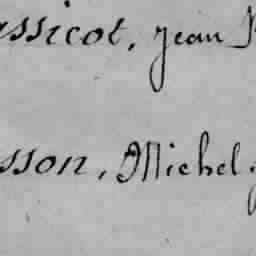 ssicot, Jean
sson, Michel